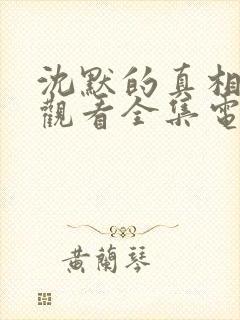 沈默的真相
觀看全集電
黃蘭琴